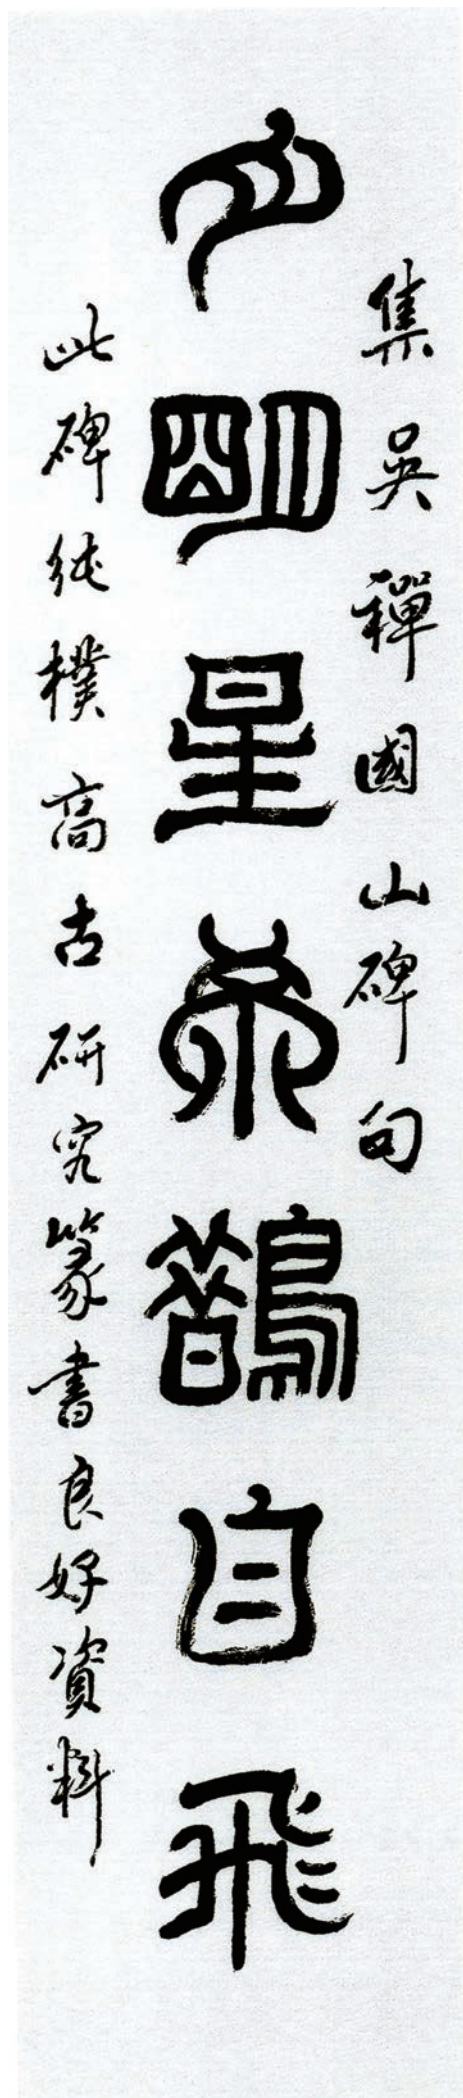 集吳禪國山碑句
月明星希鵲自飛
此碑純樸高古研究篆書良好資料